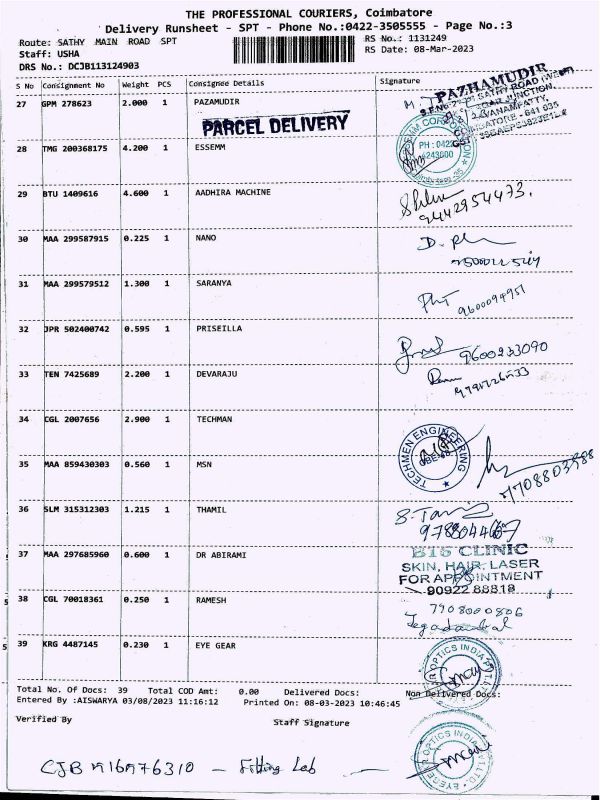 THE PROFESSIONAL COURIERS, Coimbatore
Delivery Runsheet - SPT - Phone No.:0422-3505555 - Page No.:3
Route: SATHY MAIN ROAD SPT RS No.: 1131249
Staff: USHA RS Date: 08-Mar-2023
DRS No.: DCJB113124903
S No Consignment No Weight PCS Consignee Details Signature
27 GPM 278623 2.000 1 PAZAMUDIR
PAZHAMUDIR
PARCEL DELIVERY
28 TMG 200368175 4.200 1 ESSEMM
PH : 0422
29 BTU 1409616 4.600 1 AADHIRA MACHINE
9442954473.
30 MAA 299587915 0.225 1 NANO
31 MAA 299579512 1.300 1 SARANYA
9600094951
32 JPR 502400742 0.595 1 PRISEILLA
9600233090
33 TEN 7425689 2.200 1 DEVARAJU
34 CGL 2007656 2.900 1 TECHMAN
TECHMEN ENGINEERING
35 MAA 859430303 0.560 1 MSN
7708803988
36 SLM 315312303 1.215 1 THAMIL
37 MAA 297685960 0.600 1 DR ABIRAMI
BTS CLINIC
SKIN, HAIR, LASER
FOR APPOINTMENT
90922 88818
38 CGL 70018361 0.250 1 RAMESH
7908000806
39 KRG 4487145 0.230 1 EYE GEAR
OPTICS INDIA
Total No. Of Docs: 39 Total COD Amt: 0.00 Delivered Docs: Non Delivered Docs:
Entered By :AISWARYA 03/08/2023 11:16:12 Printed On: 08-03-2023 10:46:45
Verified By Staff Signature
OPTICS INDIA
CJB 916976310 - Fitting Lab